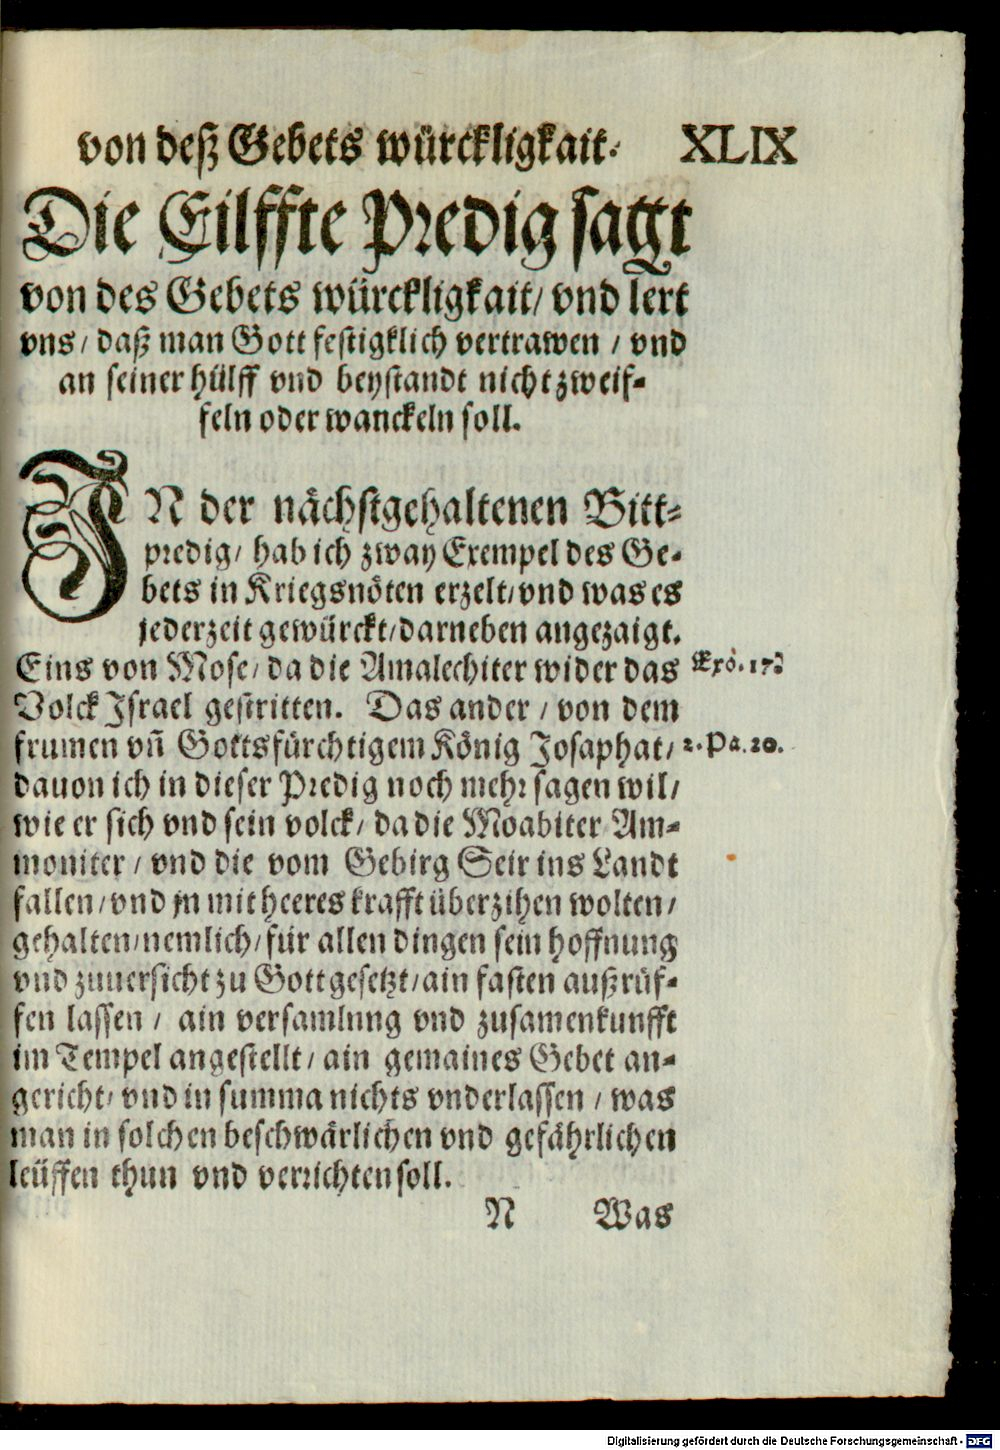 von deß Gebets würckligkait. XLIX
Die Eilffte Predig sagt
von des Gebets würckligkait/ vnd lert
vns/ daß man Gott festigklich vertrawen / vnd
an seiner hülff vnd beystandt nicht zweif-
feln oder wanckeln soll.
IN der nächstgehaltenen Bitt-
predig/ hab ich zway Exempel des Ge-
bets in Kriegsnöten erzelt/ vnd was es
jederzeit gewürckt/ darneben angezaigt.
Eins von Mose/ da die Amalechiter wider das Exo. 17.
Volck Israel gestritten. Das ander / von dem
frumen vñ Gottsfürchtigem König Josaphat/ 2. Pa. 20.
dauon ich in dieser Predig noch mehr sagen wil/
wie er sich vnd sein volck/ da die Moabiter Am-
moniter / vnd die vom Gebirg Seir ins Landt
fallen/ vnd jn mit heeres krafft überzihen wolten/
gehalten/ nemlich/ für allen dingen sein hoffnung
vnd zuuersicht zu Gott gesetzt/ ain fasten außrüf-
fen lassen / ain versamlung vnd zusamenkunfft
im Tempel angestellt/ ain gemaines Gebet an-
gericht/ vnd in summa nichts vnderlassen / was
man in solchen beschwärlichen vnd gefährlichen
leüffen thun vnd verrichten soll.
N Was
Digitalisierung gefördert durch die Deutsche Forschungsgemeinschaft - DFG